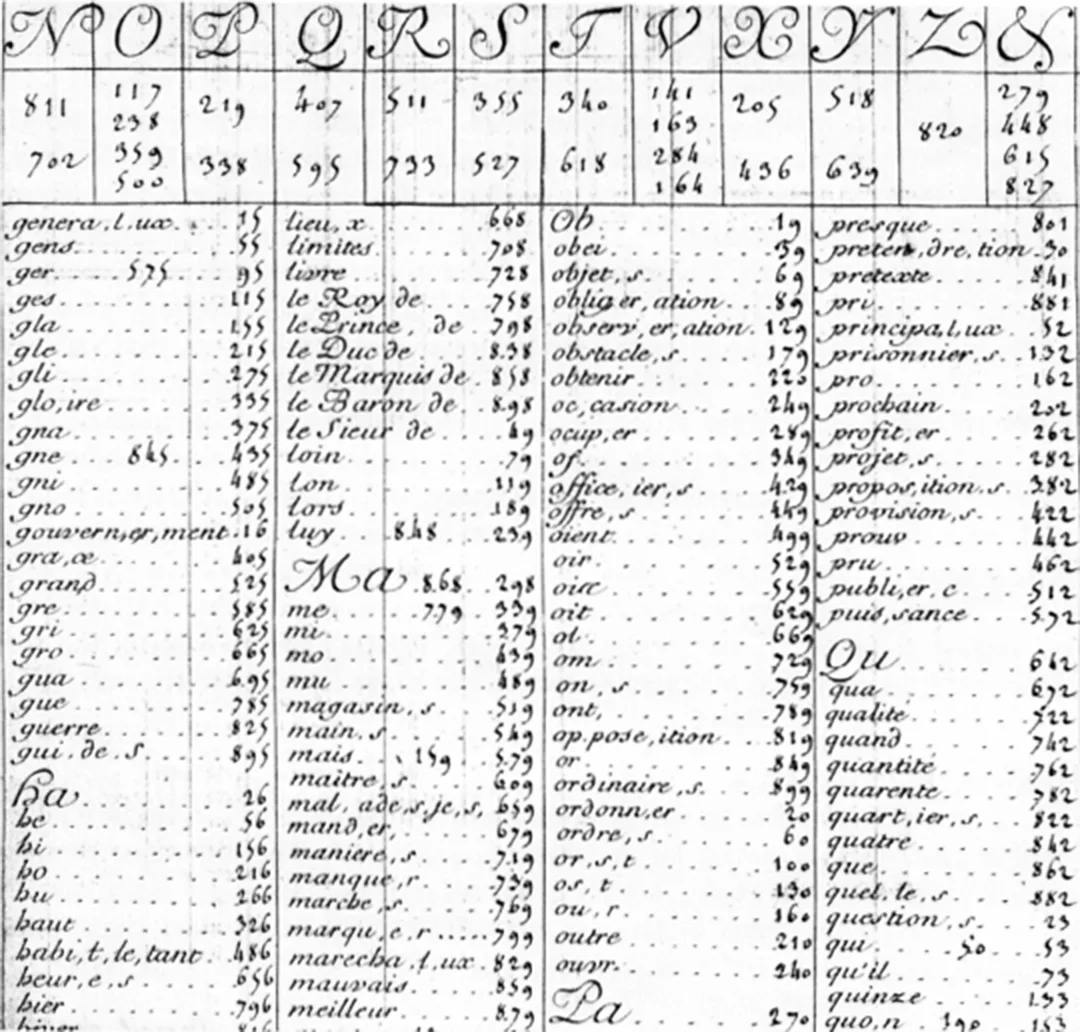 N O P Q R S T V X Y Z &
811 117 219 407 511 355 340 141 205 518 279
238 163 820 448
702 359 338 595 733 527 618 284 436 639 615
500 164 827
genera, l. ux. 15
gens 55
ger 575 95
ges 115
gla 155
gle 215
gli 275
glo, ire 335
gna 375
gne 845 435
gni 485
gno 505
gouvern, er, ment 16
gra, æ 405
grand 525
gre 585
gri 625
gro 665
gua 695
gue 785
guerre 825
gui. de. s 895
ha 26
he 56
hi 156
ho 216
hu 266
haut 326
habi, t, le, tant 486
heur, e, s 656
hier 796
hiver 816
lieu, x 668
limites 708
livre 728
le Roy de 758
le Prince, de 798
le Duc de 838
le Marquis de 858
le Baron de 898
le Sieur de 49
loin 79
lon 119
lors 189
luy 848 239
Ma 868 298
me 779 339
mi 379
mo 439
mu 489
magasin, s 519
main. s 549
mais 159 579
maitre, s 609
mal, ade, s, je, s, 659
mand, er, 679
maniere, s 719
manque, r 739
marche, s 769
marqu, e, r 799
marecha, l, ux 829
mauvais 859
meilleur 879
Ob 19
obei 39
objet, s 69
oblig er, ation 89
observ, er, ation 129
obstacle, s 179
obtenir 220
oc, casion 249
ocup, er 289
of 349
office, ier, s 429
offre, s 449
oient 499
oir 529
oise 559
oit 629
ol 669
om 729
on, s 759
ont, 789
op. pose, ition 819
or 849
ordinaire, s 899
ordonn, er 20
ordre, s 60
or, s, t 100
os, t 130
ou, r 160
outre 210
ouvr 240
Pa 270
presque 801
preten, dre, tion 30
pretexte 841
pri 881
principa, l, ux 52
prisonnier, s 132
pro 162
prochain 202
profit, er 262
projet, s 282
propos, ition, s 382
provision, s 422
prouv 442
pru 462
publi, er, c 512
puis, sance 572
Qu 642
qua 672
qualité 722
quand 742
quantité 762
quarente 782
quart, ier, s, 822
quatre 842
que 862
quel, le, s 882
question, s 23
qui 50 53
qu'il 73
quinze 133
quo, n 190 153